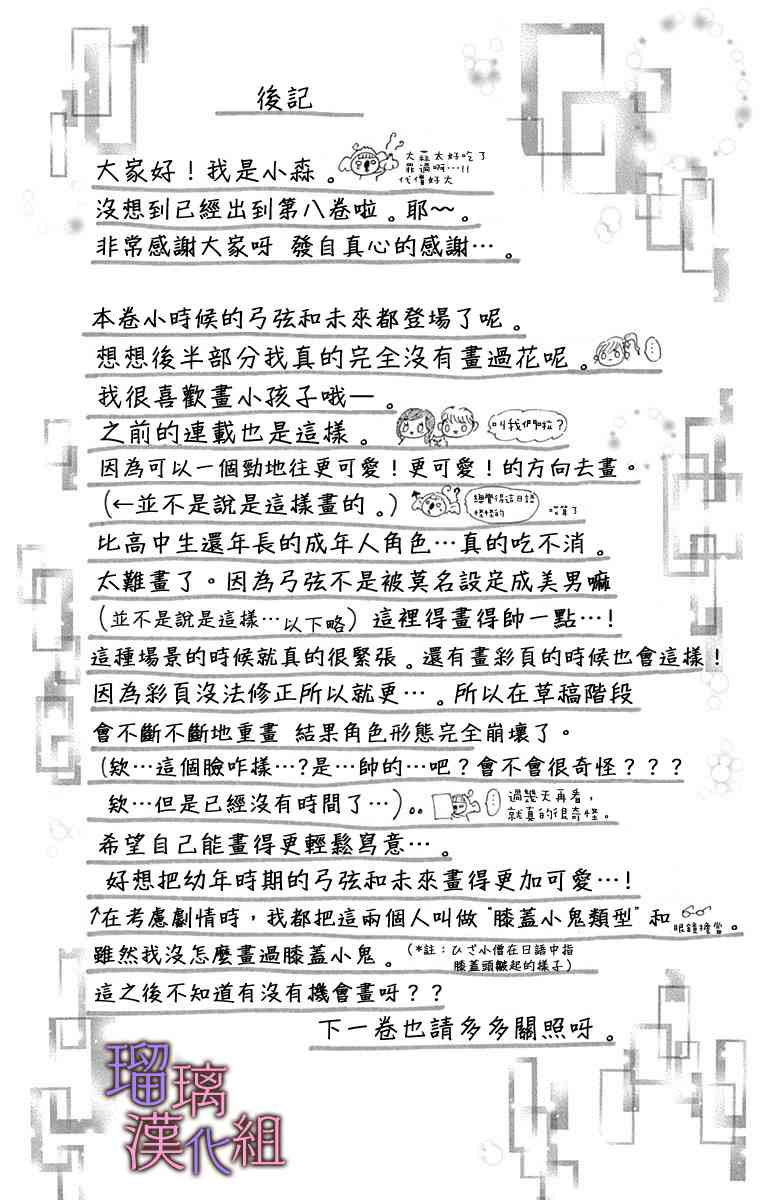 後記
大家好！我是小森。
大蒜太好吃了
罪過啊…!!
代價好大
沒想到已經出到第八卷啦。耶~~。
非常感謝大家呀 發自真心的感謝…。
本卷小時候的弓弦和未來都登場了呢。
想想後半部分我真的完全沒有畫過花呢。
我很喜歡畫小孩子哦一。
之前的連載也是這樣。
叫我們咖啦？
因為可以一個勁地往更可愛！更可愛！的方向去畫。
(←並不是說是這樣畫的。)
總覺得這日語
怪怪的
哎算了
比高中生還年長的成年人角色…真的吃不消。
太難畫了。因為弓弦不是被莫名設定成美男嘛
(並不是說是這樣…以下略) 這裡得畫得帥一點…!
這種場景的時候就真的很緊張。還有畫彩頁的時候也會這樣！
因為彩頁沒法修正所以就更…。所以在草稿階段
會不斷不斷地重畫 結果角色形態完全崩壞了。
(欸…這個臉咋樣…?是…帥的…吧？會不會很奇怪？？？
欸…但是已經沒有時間了…)。。
過幾天再看，
就真的很奇怪。
希望自己能畫得更輕鬆寫意…。
好想把幼年時期的弓弦和未來畫得更加可愛…!
↑在考慮劇情時，我都把這兩個人叫做"膝蓋小鬼類型"和
眼鏡擔當。
雖然我沒怎麼畫過膝蓋小鬼。
(*註：ひざ小僧在日語中指
膝蓋頭皺起的樣子)
這之後不知道有沒有機會畫呀？？
下一卷也請多多關照呀。
瑠璃
漢化組